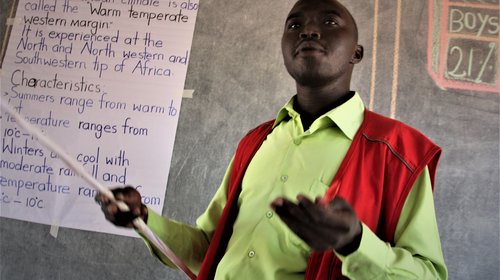 climate is also
called the "Warm temperate
western margin"
It is experienced at the
North and North western and
Southwestern tip of Africa.
Characteristics:
Summers range from warm to
Temperature ranges from
10°C -
Winters are cool with
moderate rainfall and
temperature range from
°C - 10°C
BOYS
21